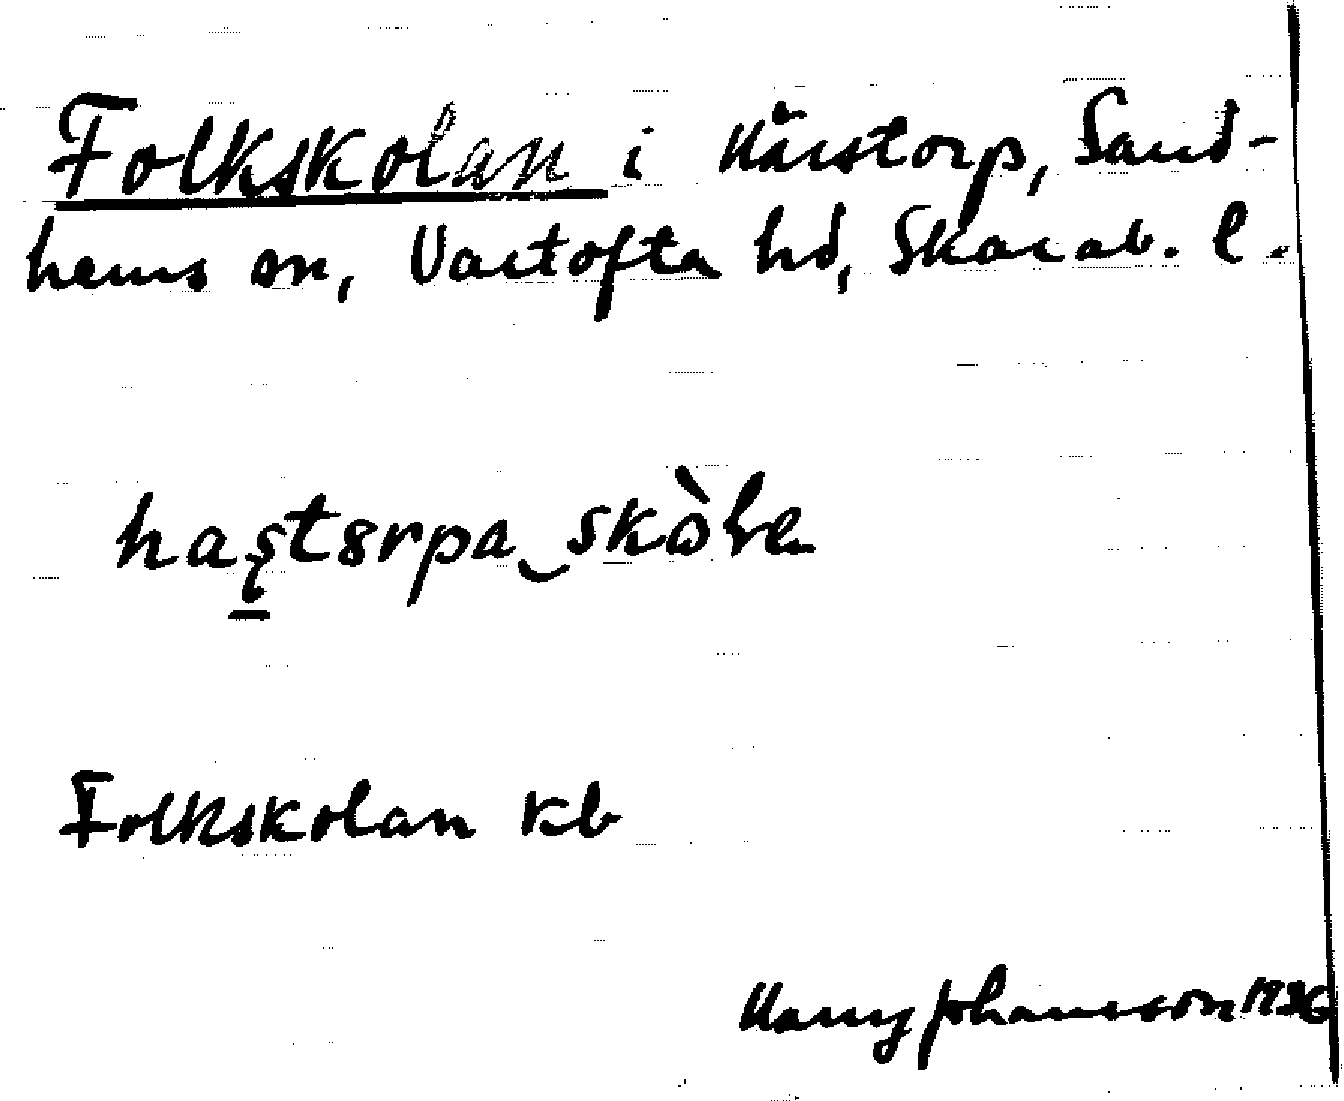 Folkskolan i Härstorp, Sand-
hems sn, Vartofta hd, Skarab. l.
haʂtɜrpa‿skòla
Folkskolan kb
Harry Johansson 1936